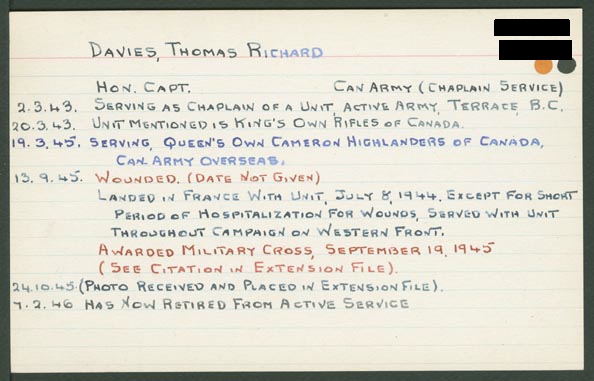 DAVIES, THOMAS RICHARD
HON. CAPT. CAN ARMY (CHAPLAIN SERVICE)
2.3.43. SERVING AS CHAPLAIN OF A UNIT, ACTIVE ARMY, TERRACE, B.C.
20.3.43. UNIT MENTIONED IS KING'S OWN RIFLES OF CANADA.
19.3.45. SERVING, QUEEN'S OWN CAMERON HIGHLANDERS OF CANADA,
CAN. ARMY OVERSEAS.
13.9.45. WOUNDED. (DATE NOT GIVEN)
LANDED IN FRANCE WITH UNIT, JULY 8, 1944. EXCEPT FOR SHORT
PERIOD OF HOSPITALIZATION FOR WOUNDS, SERVED WITH UNIT
THROUGHOUT CAMPAIGN ON WESTERN FRONT.
AWARDED MILITARY CROSS, SEPTEMBER 19, 1945
(SEE CITATION IN EXTENSION FILE).
24.10.45. (PHOTO RECEIVED AND PLACED IN EXTENSION FILE).
7.2.46 HAS NOW RETIRED FROM ACTIVE SERVICE